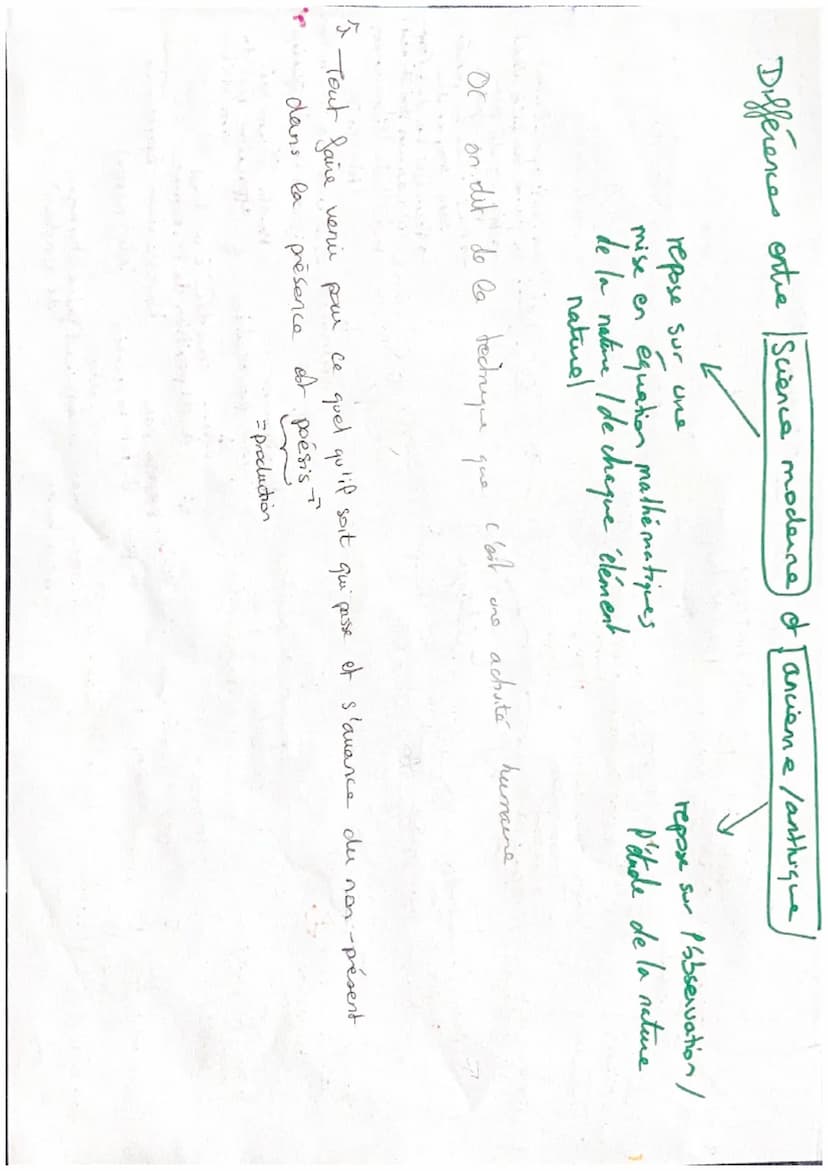 Différences entre Science moderne et ancienne/anthique
repose sur une
mise en équation mathématiques
de la nature / de chaque élément
naturel
repose sur l'observation /
l'étude de la nature
Or on dit de la technique que c'est une activité humaine
"Tout faire venir pour ce quel qu'il soit qui passe et s'avance du non-présent
dans la présence est poésis"
= production